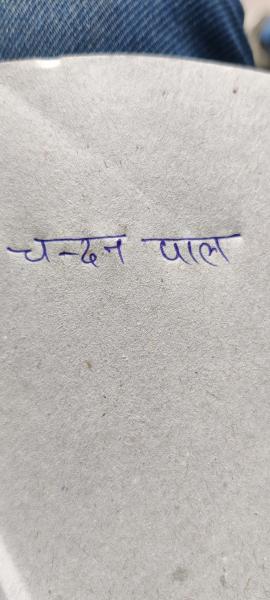 चन्दन पाल